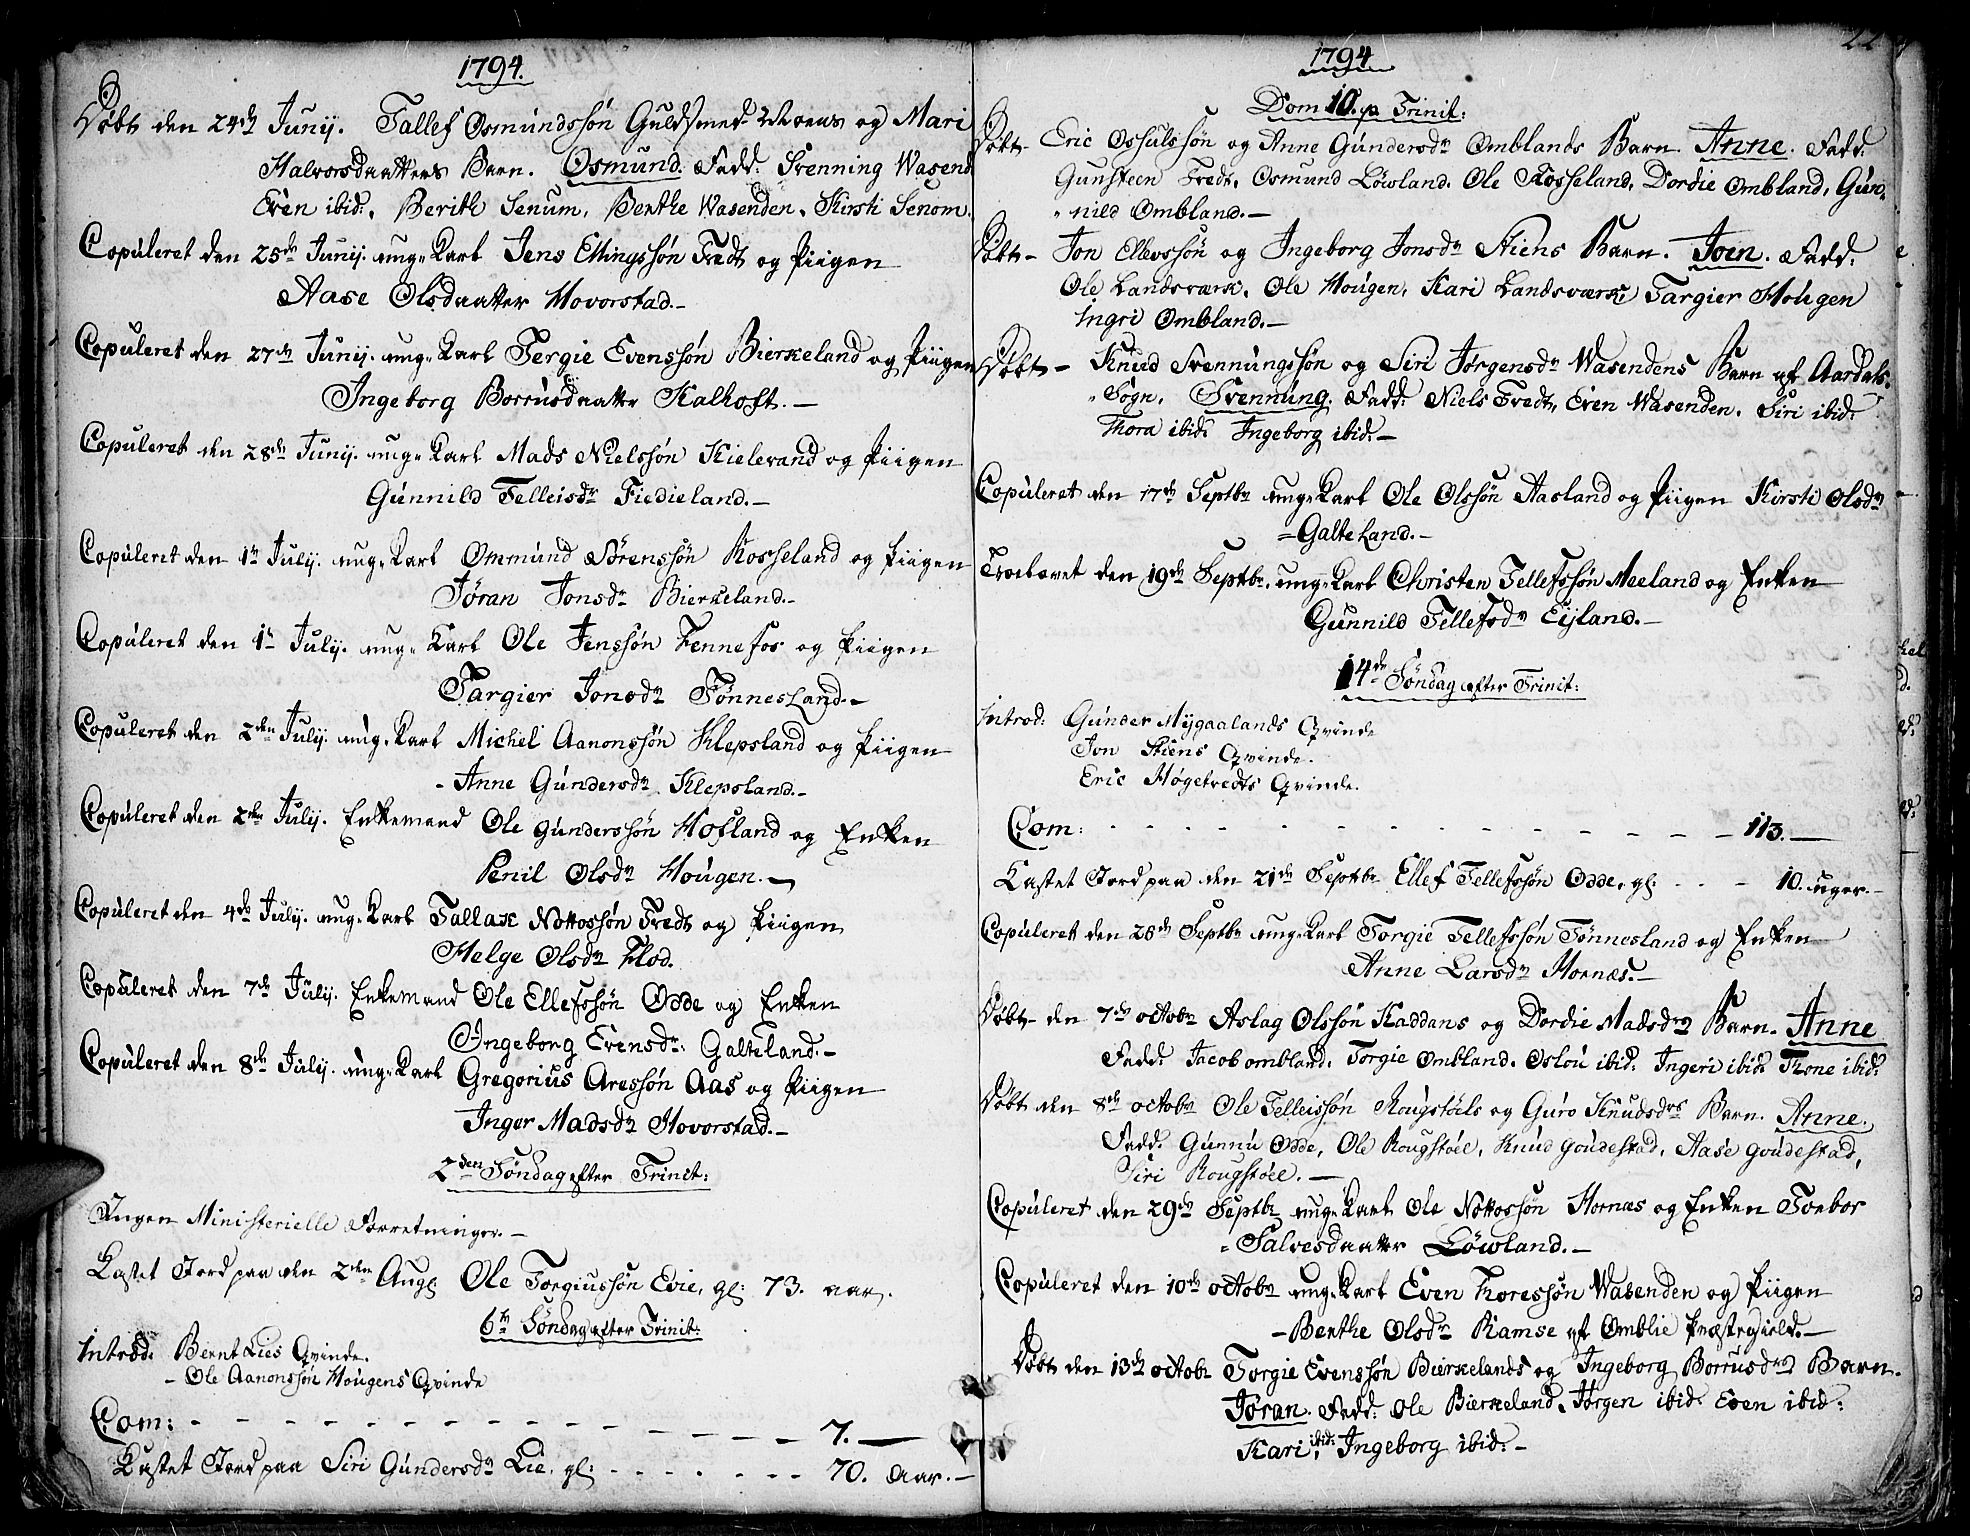 1794.
Döbt den 24de Junij. Tallef Osmundssøn Guldsmed og Mari
Halvorsdaatters Barn. Osmund. Fadd: Svenning Wasend
Even ibid:, Berith Senum, Berthe Wasenden, Kirsti Senom.
Copúleret den 25de Junij. ung-Karl Jens Ellingssøn Fredt og Piigen
Aase Olsdaatter Hovorstad.-
Copuleret den 27de Junij. ung-Karl Tergie Evenssøn Bierkeland og Piigen
Ingeborg Borrusdaatter Kalhoft.-
Copúleret den 28de Junij. ung-Karl Mads Nielssøn Kielevand og Piigen
Gúnnild Telleisdr Fiedieland.-
Copúleret den 1te July. ung-Karl Ommund Sörenssøn Rosseland og Piigen
Jöran Jonsdr Bierkeland.-
Copúleret den 1te July. ung- Karl Ole Jenssøn Fennefos og Piigen
Targier Jonsdr TønnesLand.-
Copuleret den 2den July. ung-Karl Michel Aanonssøn Klepsland og Piigen
- Anne Gúndersdr Klepsland.-
Copúleret den 2den July. Enkemand Ole Gunderssøn Hofland og Enken
Penil Olsdr Hoúgen.-
Copúleret den 4de July. ung-Karl Tallak Nottossøn Fredt og Piigen
Helge Olsdr Flod.
Copúleret den 7de July. Enkemand Ole Ellefssøn Odde og Enken
Ingeborg Evensdr: Galteland.-
Copúleret den 8de July. ung-Karl Gregorius Aressøn Aas og Piigen
Inger Madsdr Hovorstad.-
2den Søndag efter Trinit:
Ingen Ministerielle Forretninger.-
Kastet Jord paa den 2den Augs Ole Torgiussøn Evie, gl: 73. aar.
6te Søndag efter Trinit:
Introd: Bernt Lies Qvinde.
- Ole Aanonssøn Hoúgens Qvinde
Com: - - - - - - - - - - - - 7.-
Kastet Jord paa Siri Gúndersdr Lie, gl: - - - - - - - 70. Aar.-
1794
Dom 10. p. Trinit:
Döbt- Eric Ossulssøn og Anne Gúndersdr Omblands Barn. Anne. Fadd:
Gunsteen Fredt, Osmund Löwland. Ole Rosseland, Dordie Ombland, Gún-
-nild Ombland.-
Döbt- Jon Ellevssøn og Ingeborg Jonsdr Stiens Barn. Joen. Fadd:
Ole Landsværk, Ole Hoúgen, Kari Landsværk, Targier Hoúgen
Ingri Ombland.-
Döbt- Knud Svennúngssøn og Siri Jørgensdr Wasendens Barn af Aardals-
-Sogn. Svennúng. Fadd: Niels Fredt, Even Wasenden. Siri ibid:
Thora ibid: Ingeborg ibid:-
Copúleret den 17de Septbr ung-Karl Ole Olssøn Aasland og Piigen Kirsti Olsdr
=GalteLand.-
Trolovet den 19de Septbr. ung-Karl Christen Tellefssøn Meeland og Enken
Gunnild Tellefsdr Eijland.-
14de Søndag efter Trinit:
Introd: Gúnder Mygaalands Qvinde
Jon Stiens Qvinde.
Eric Høgetvedts Qvinde.
Com: - - - - - - - - - - - - - 113.-
Kastet Jord paa den 21de Septbr Ellef Tellefssøn Odde, gl: - - - 10. uger.-
Copúleret den 28de Septbr ung-Karl Torgie Tellefssøn Tønnesland og Enken
Anne Larsdr Hornæs.-
Döbt- den 7de octobr Aslag Olssøn Kaddans og Dordie Madsdrs Barn. Anne
Fadd: Jacob ombland. Torgie Ombland. Oslou ibid: Ingeri ibid: Tone ibid:
Döbt den 8de octobr Ole Telleissøn Rougstöels og Guro Knudsdrs Barn. Anne.
Fadd: Gunnú Odde, Ole Rougstöel, Knúd Goúdestad, Aase Goúdestad,
Siri Rougstöel.-
Copúleret den 29de Septbr ung-Karl Ole Nottossøn Hornæs og Enken Torbor
=Salvesdaatter Löwland.-
Copúleret den 10de octobr ung-Karl Even Thoressøn Wasenden og Piigen
-Berthe Olsdr Ramse af Omblie Præstegield.-
Döbt den 13de octobr Torgie Evenssøn Bierkelands og Ingeborg Borrusdrs Barn.
Jöran. Fadd: Ole Bierkeland, Jørgen ibid: Even ibid:
Kari ibid: Ingeborg ibid:-